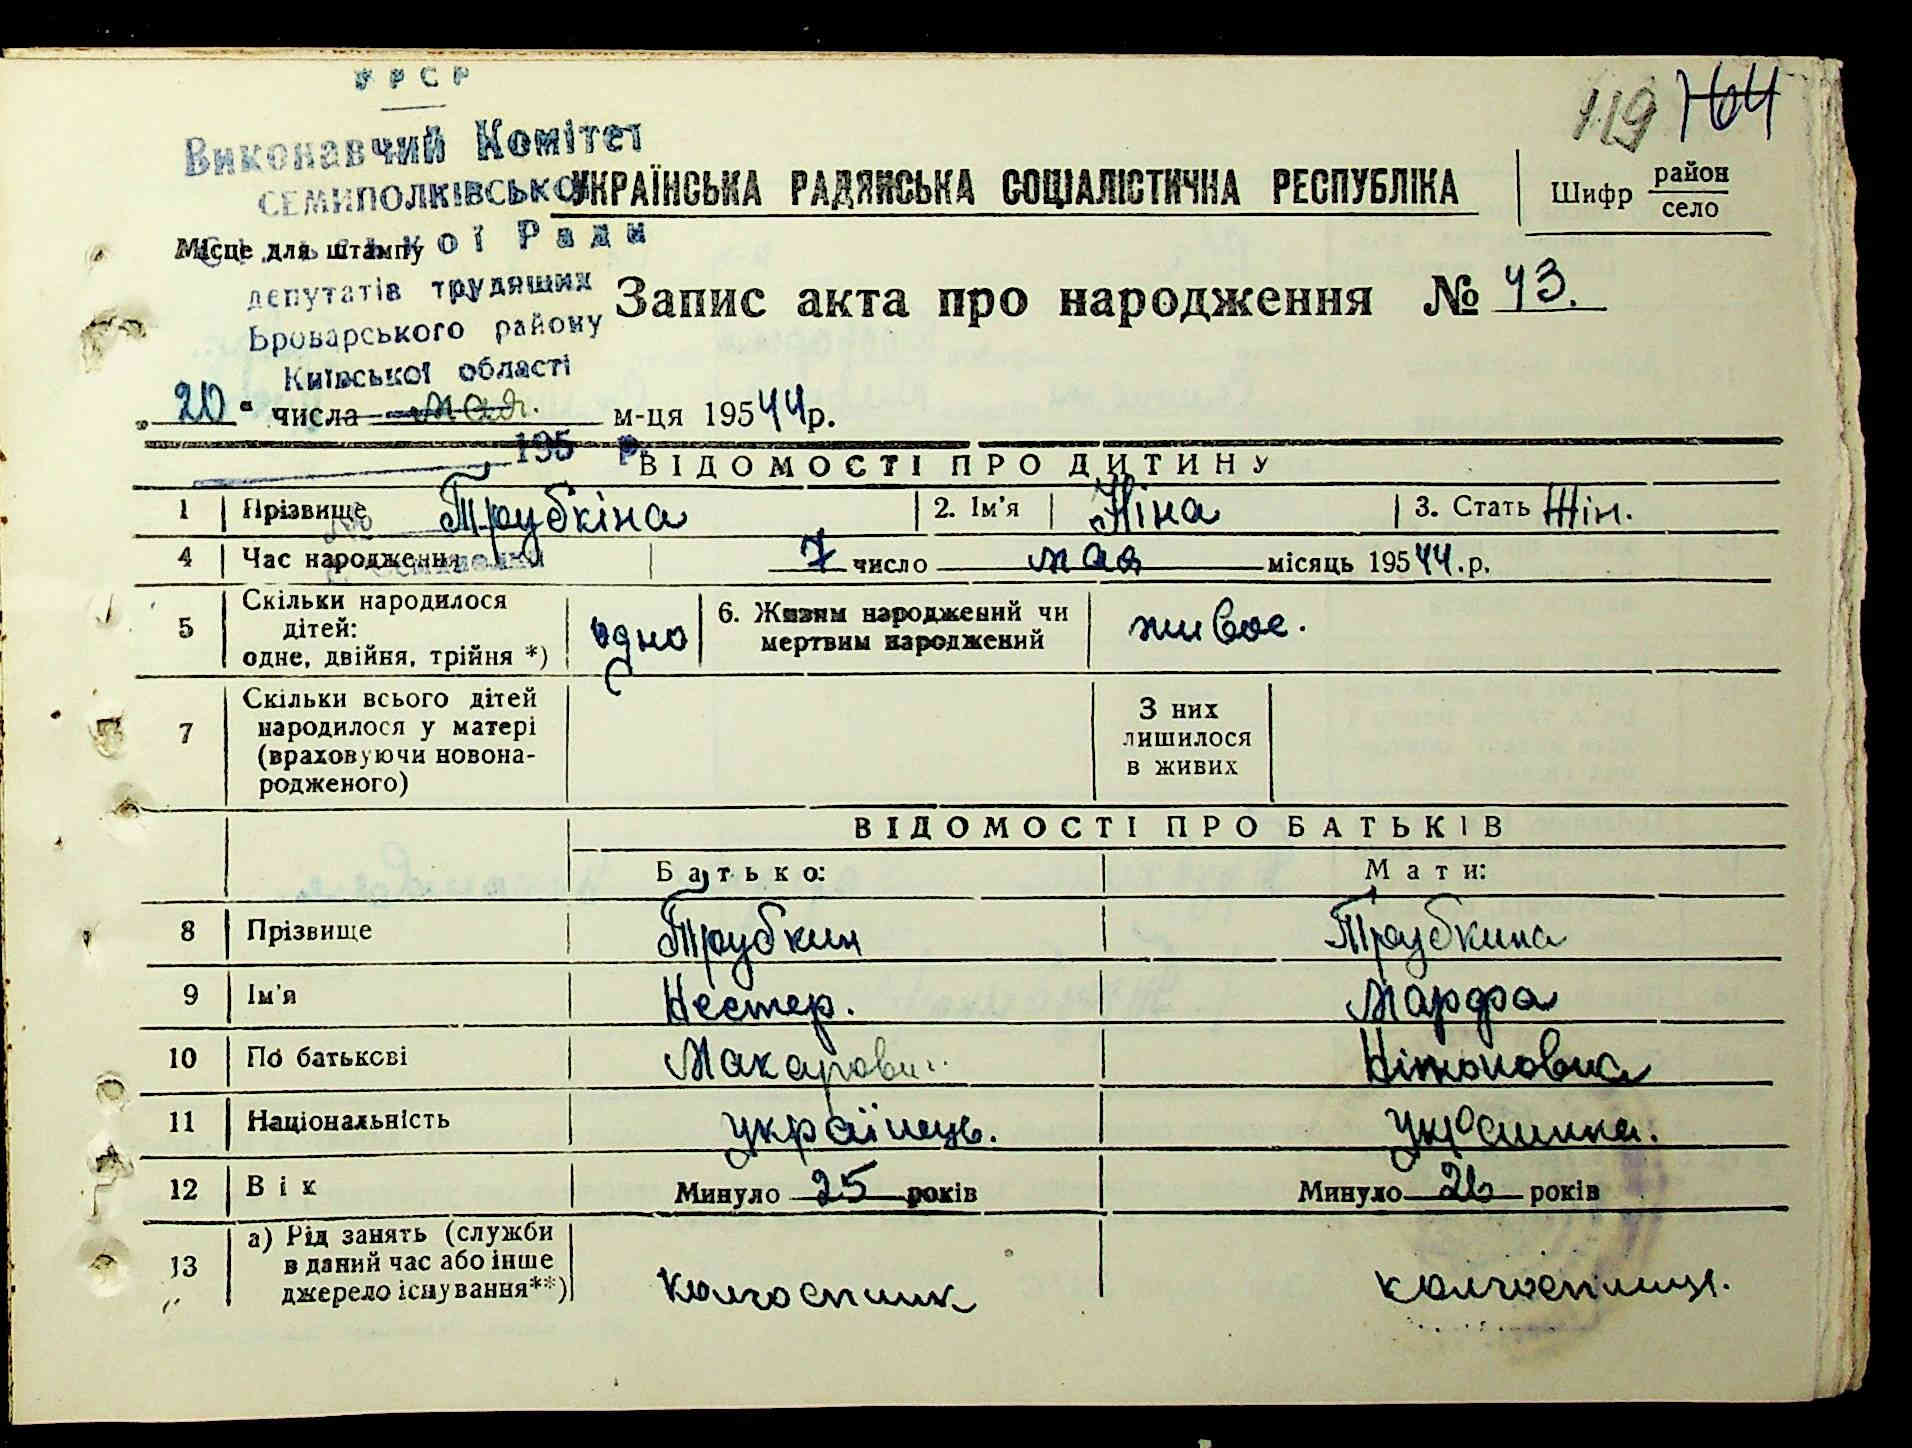 УРСР
119 164
Виконавчий Комітет
СЕМИПОЛКІВСЬКО
УКРАЇНСЬКА РАДЯНСЬКА СОЦІАЛІСТИЧНА РЕСПУБЛІКА
Шифр район
село
Місце для штампу
ої Ради
депутатів трудящих
Запис акта про народження № 43.
Броварського району
Київської області
„20“ числа мая. м-ця 19544р.
195 р.
ВІДОМОСТІ ПРО ДИТИНУ
1 Прізвище Трубкіна 2. Ім'я Ніна 3. Стать Жін.
4 Час народження 7 число мая місяць 19544.р.
5 Скільки народилося дітей: одне, двійня, трійня *) одно 6. Живим народжений чи мертвим народжений живое.
7 Скільки всього дітей народилося у матері (враховуючи новонародженого) З них лишилося в живих
ВІДОМОСТІ ПРО БАТЬКІВ
Батько: Мати:
8 Прізвище Трубкин Трубкина
9 Ім'я Нестер. Марфа
10 По батькові Макарови
11 Національність українець. украинка.
12 Вік Минуло 25 років Минуло 26 років
13 а) Рід занять (служби в даний час або інше джерело існування**) колгоспник колгоспниця.